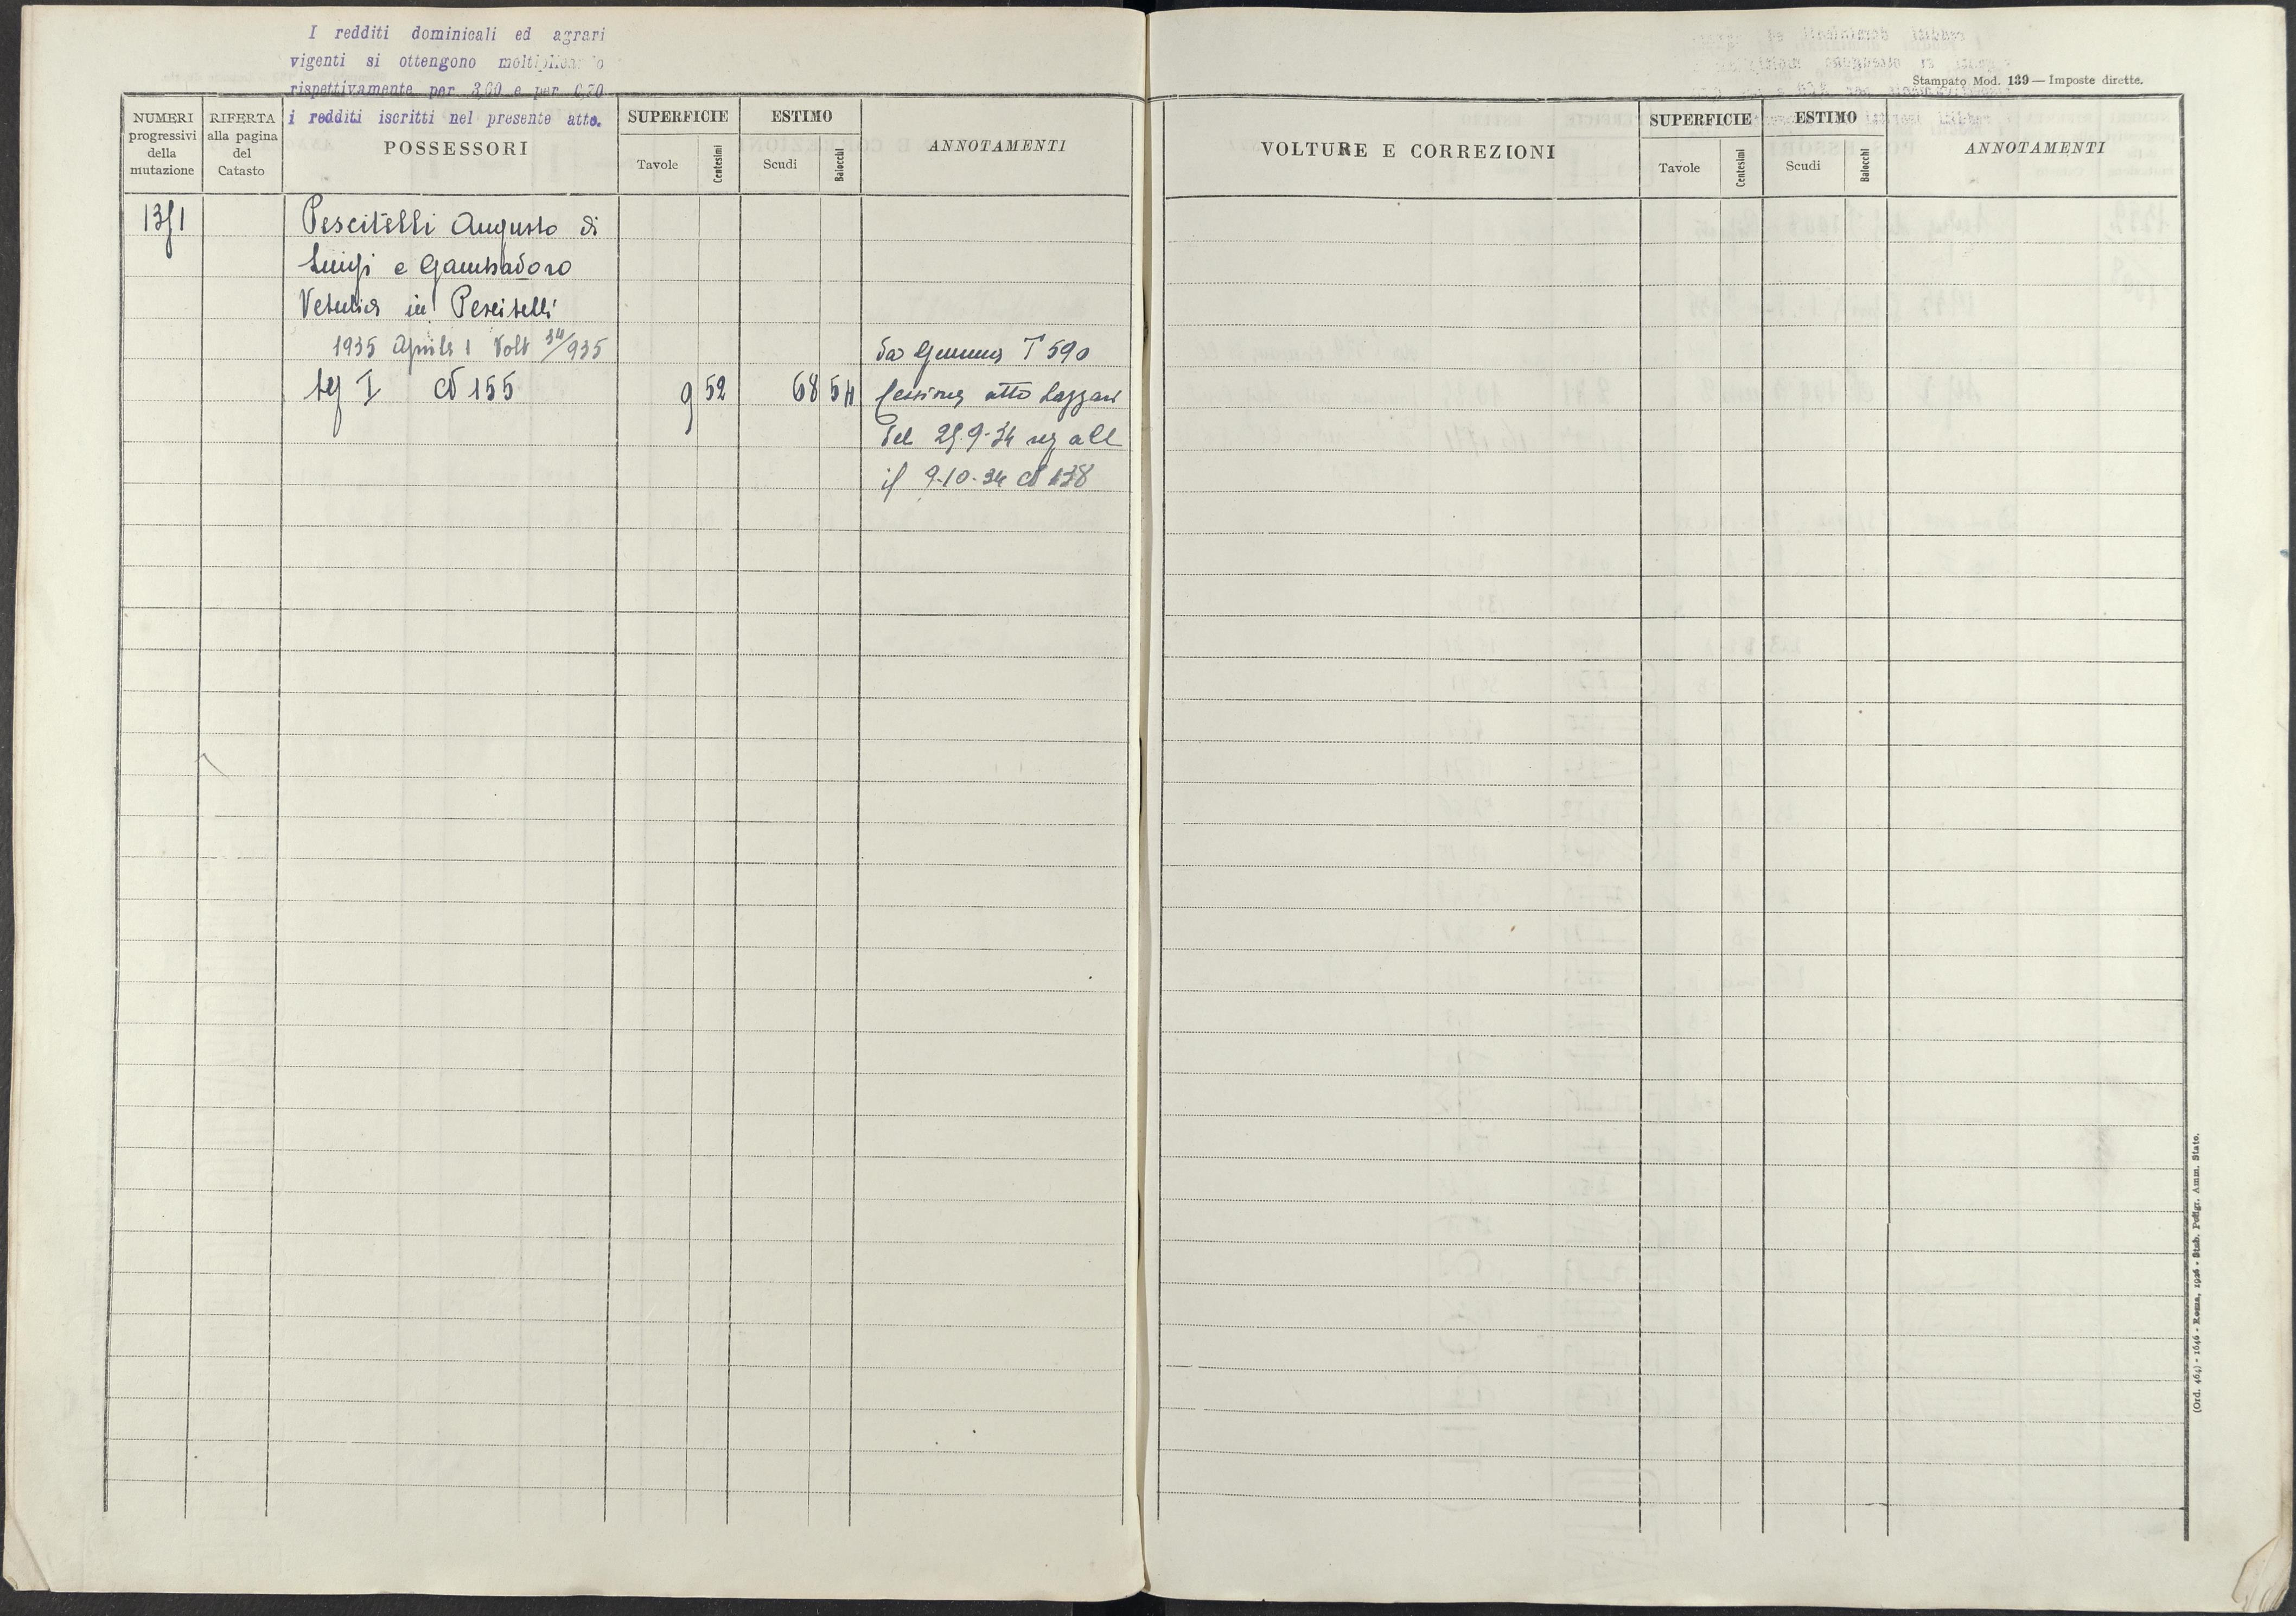 I redditi dominicali ed agrari
vigenti si ottengono moltiplicando
rispettivamente per 3,00 e per 0,30
i redditi iscritti nel presente atto.
Stampato Mod. 139 — Imposte dirette.
NUMERI progressivi della mutazione
RIFERTA alla pagina del Catasto
POSSESSORI
SUPERFICIE
Tavole
Centesimi
ESTIMO
Scudi
Baiocchi
ANNOTAMENTI
VOLTURE E CORREZIONI
SUPERFICIE
Tavole
Centesimi
ESTIMO
Scudi
Baiocchi
ANNOTAMENTI
Pescitelli Augusto di
Luigi e Gambadoro
Vetulia in Pescitelli
1935 Aprile 1 Volt 34/935
da T 590
I 155 9 52 68 54 Cessione atto Lazzari
del 25.9-34 reg all
il 9-10-34 138
(Ord. 464) - 1646 - Roma, 1926 - Stab. Poligr. Amm. Stato.